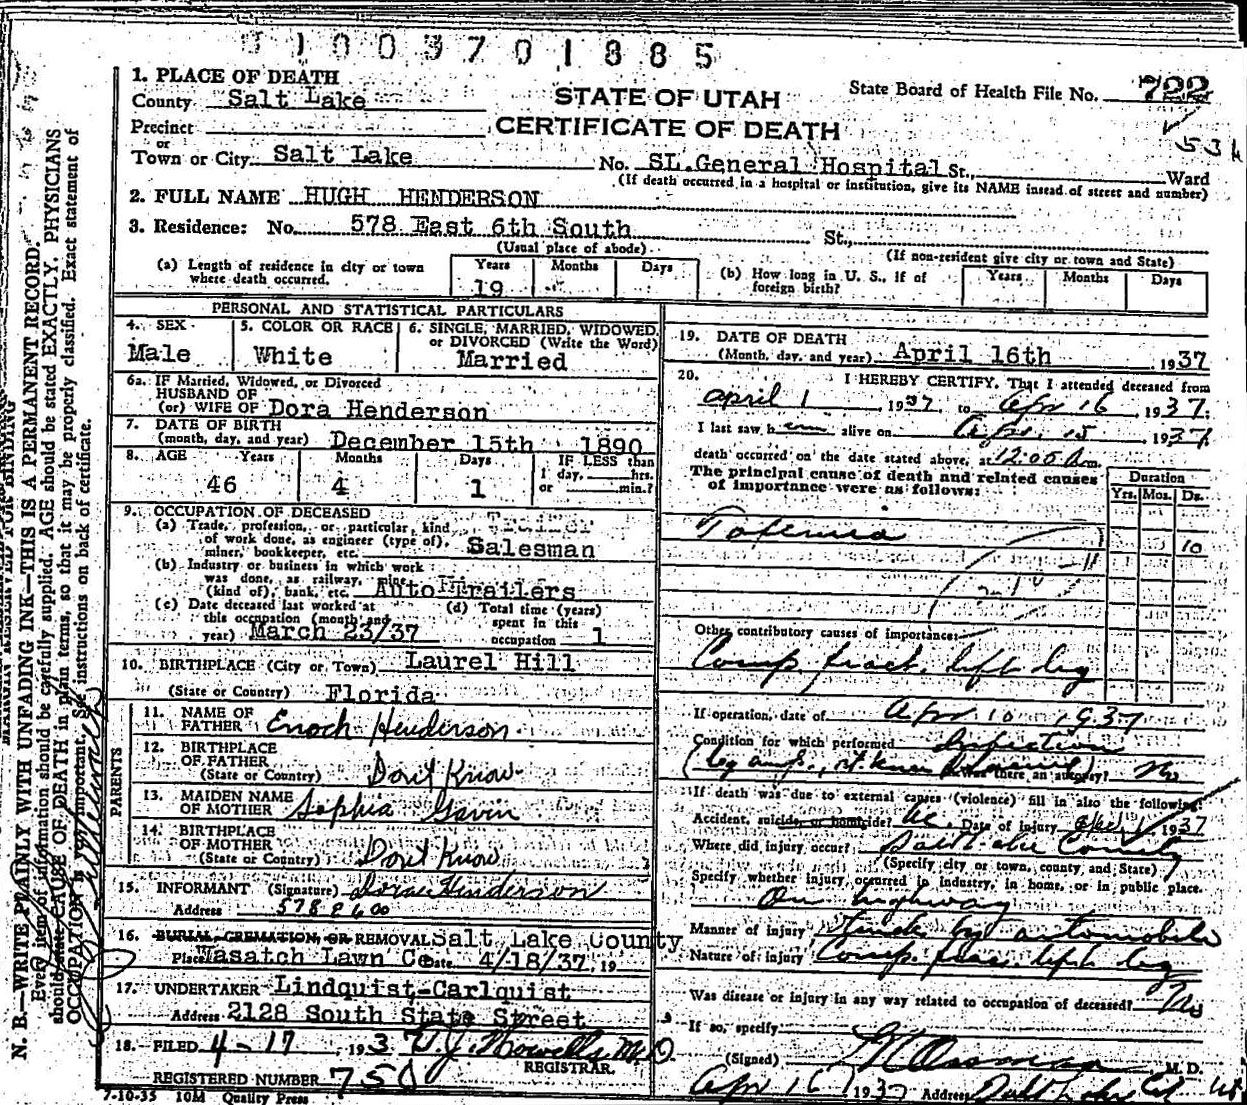 1003701885
1. PLACE OF DEATH
County Salt Lake
STATE OF UTAH
State Board of Health File No. 722
Precinct
CERTIFICATE OF DEATH
or
Town or City Salt Lake No. SL.General Hospital St., Ward
(If death occurred in a hospital or institution, give its NAME instead of street and number)
2. FULL NAME HUGH HENDERSON
3. Residence: No. 578 East 6th South St.,
(Usual place of abode)
(If non-resident give city or town and State)
(a) Length of residence in city or town where death occurred. Years 19 Months Days
(b) How long in U. S., if of foreign birth? Years Months Days
PERSONAL AND STATISTICAL PARTICULARS
4. SEX Male
5. COLOR OR RACE White
6. SINGLE, MARRIED, WIDOWED, or DIVORCED (Write the Word) Married
6a. IF Married, Widowed, or Divorced
HUSBAND OF
(or) WIFE OF Dora Henderson
7. DATE OF BIRTH
(month, day, and year) December 15th 1890
8. AGE Years 46 Months 4 Days 1 IF LESS than 1 day, hrs. or min.?
9. OCCUPATION OF DECEASED
(a) Trade, profession, or particular, kind of work done, as engineer (type of), miner, bookkeeper, etc. Salesman
(b) Industry or business in which work was done, as railway, mine (kind of), bank, etc. Auto Trailers
(c) Date deceased last worked at this occupation (month and year) March 23/37
(d) Total time (years) spent in this occupation 1
10. BIRTHPLACE (City or Town) Laurel Hill
(State or Country) Florida
PARENTS
11. NAME OF FATHER Enoch Henderson
12. BIRTHPLACE OF FATHER
(State or Country) Don't Know
13. MAIDEN NAME OF MOTHER Sophia Gavin
14. BIRTHPLACE OF MOTHER
(State or Country) Don't Know
15. INFORMANT (Signature) Dora Henderson
Address 578 E 6 00
16. BURIAL, CREMATION, OR REMOVAL Salt Lake County
Place Wasatch Lawn Date 4/18/37, 19
17. UNDERTAKER Lindquist-Carlquist
Address 2128 South State Street
18. FILED 4-17, 1937 Howells M.D.
REGISTRAR.
REGISTERED NUMBER 750
7-10-35 10M Quality Press
19. DATE OF DEATH
(Month, day, and year) April 16th, 1937
20. I HEREBY CERTIFY, That I attended deceased from
April 1, 1937, to Apr 16, 1937.
I last saw him alive on Apr. 15, 1937
death occurred on the date stated above, at 12:05 A.m.
The principal cause of death and related causes of importance were as follows:
Duration
Yrs. Mos. Ds.
Toxemia 10
Other contributory causes of importance:
Comp. fract. left leg
If operation, date of Apr 10 1937
Condition for which performed Infection
(leg amp., rt. knee) Was there an autopsy? No
If death was due to external causes (violence) fill in also the following:
Accident, suicide, or homicide? Ac. Date of injury 1937
Where did injury occur? Salt Lake County
(Specify city or town, county, and State)
Specify whether injury occurred in industry, in home, or in public place.
On highway
Manner of injury Struck by automobile
Nature of injury Comp. frac. left leg
Was disease or injury in any way related to occupation of deceased? No
If so, specify
(Signed) M. D.
Apr 16 1937 Address Salt Lake
N. B.—WRITE PLAINLY WITH UNFADING INK—THIS IS A PERMANENT RECORD.
Every item of information should be carefully supplied. AGE should be stated EXACTLY. PHYSICIANS
should state CAUSE OF DEATH in plain terms, so that it may be properly classified. Exact statement of
OCCUPATION is very important. See instructions on back of certificate.
MARGIN RESERVED FOR BINDING